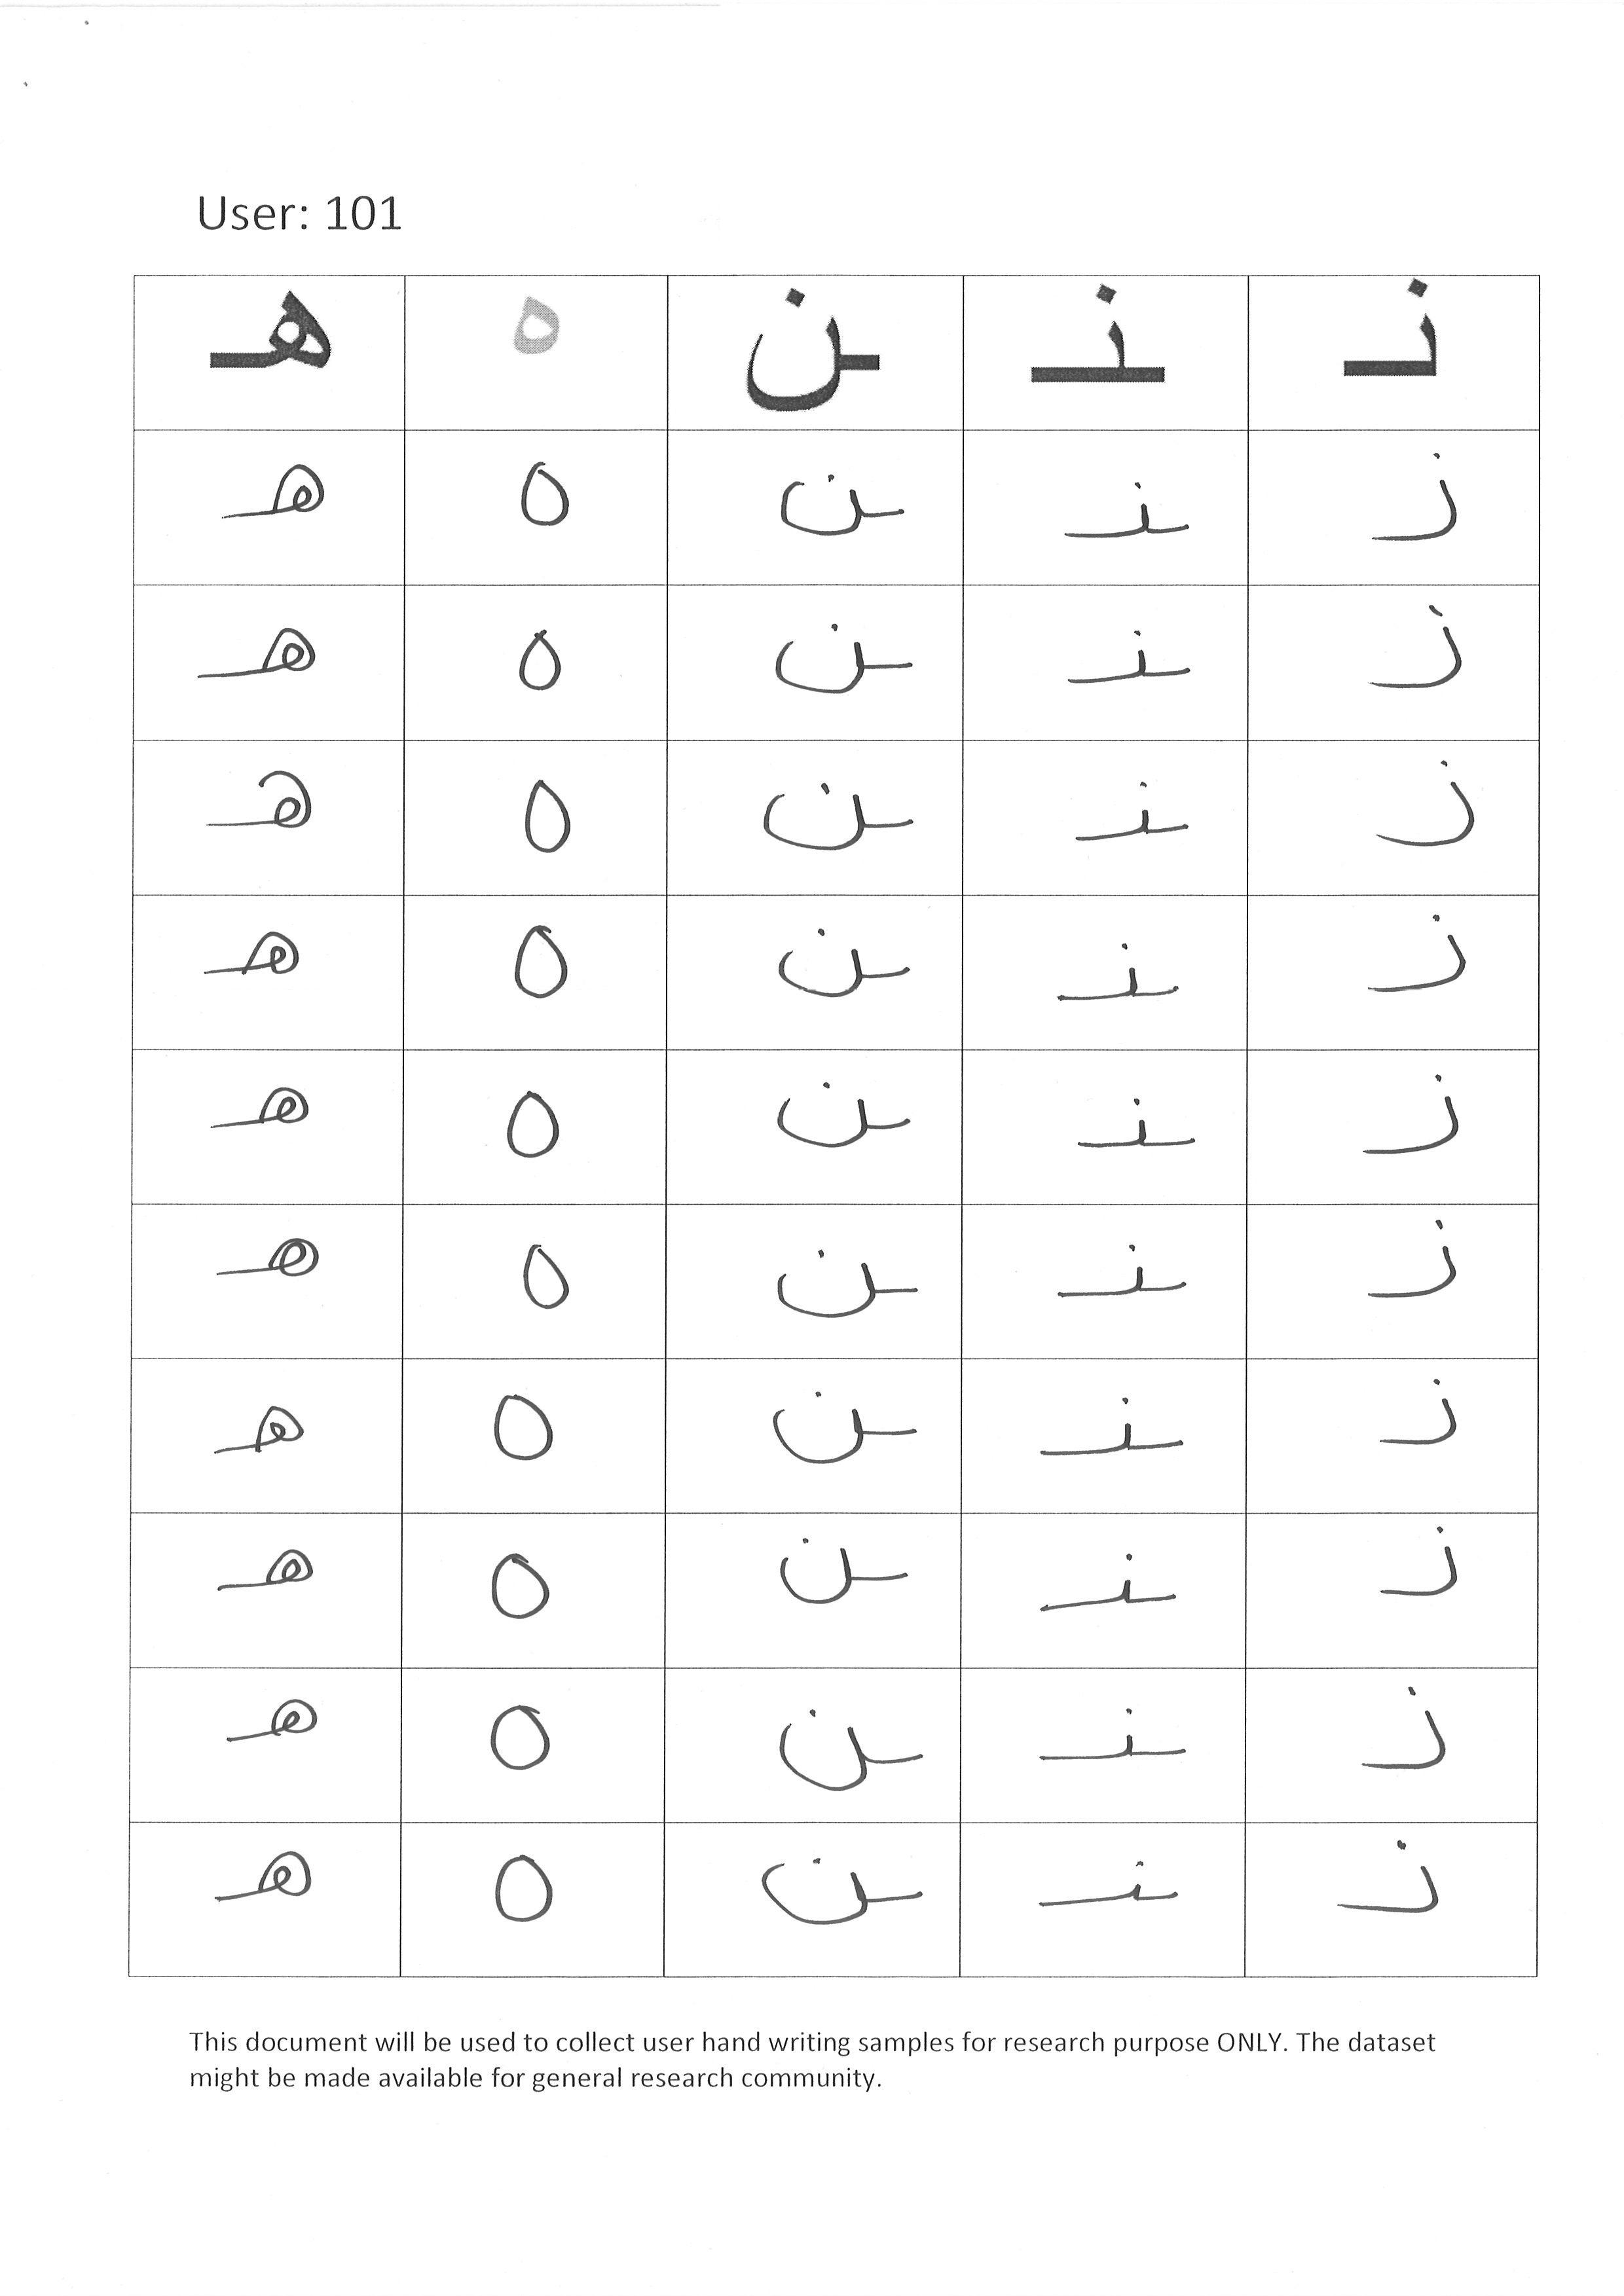 User: 101
نـ ـنـ ـن ه هـ
نـ ـنـ ـن ه هـ
نـ ـنـ ـن ه هـ
نـ ـنـ ـن ه هـ
نـ ـنـ ـن ه هـ
نـ ـنـ ـن ه هـ
نـ ـنـ ـن ه هـ
نـ ـنـ ـن ه هـ
نـ ـنـ ـن ه هـ
نـ ـنـ ـن ه هـ
نـ ـنـ ـن ه هـ
This document will be used to collect user hand writing samples for research purpose ONLY. The dataset
might be made available for general research community.